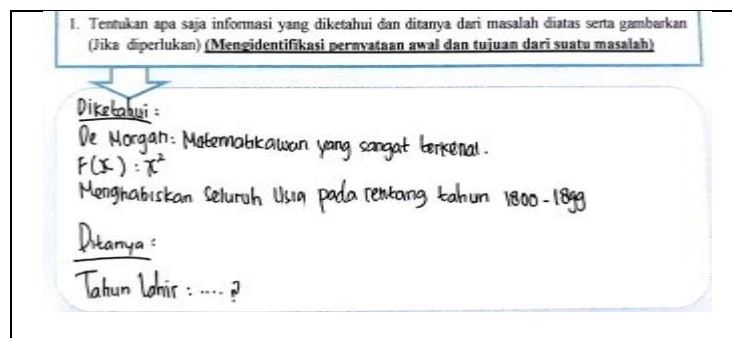 1. Tentukan apa saja informasi yang diketahui dan ditanya dari masalah diatas serta gambarkan
(Jika diperlukan) (Mengidentifikasi pernyataan awal dan tujuan dari suatu masalah)
Diketahui :
De Morgan : Matematikawan yang sangat terkenal.
F(x) : x²
Menghabiskan Seluruh Usia pada rentang tahun 1800 - 1899
Ditanya :
Tahun lahir : .... ?